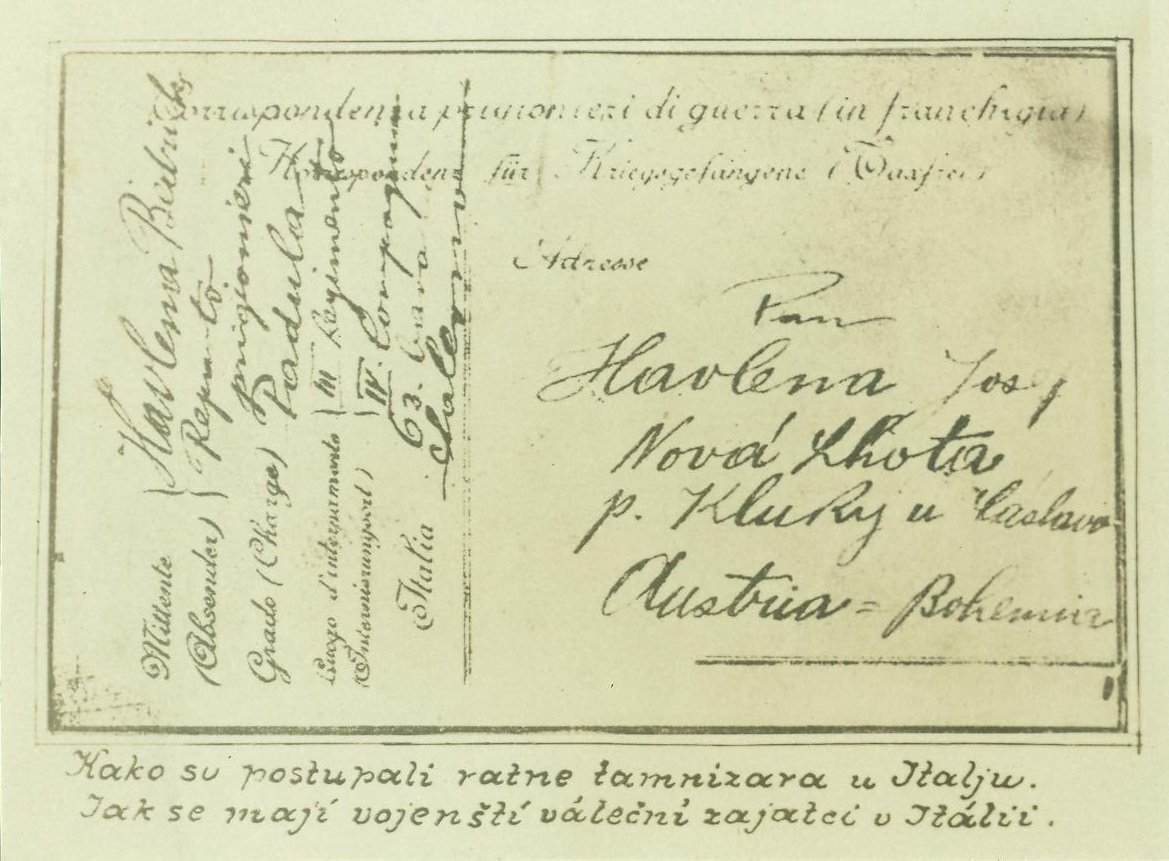 Corrispondenza prigionieri di guerra (in franchigia)
Korrespondenz für Kriegsgefangene (Taxfrei)
Mittente
(Absender)
Havlena
Reparto
prigionieri
Grado (Charge)
Padula
Luogo d'internamento
(Internierungsort)
III Regimento
IV. Compagnia
63. bara
Italia
Salerno
Adresse
Pan
Havlena Josef
Nová Lhota
p. Kluky u Čáslavo
Austria = Bohemia
Kako su postupali ratne tamnizara u Italju.
Jak se mají vojenští váleční zajatci v Itálii.